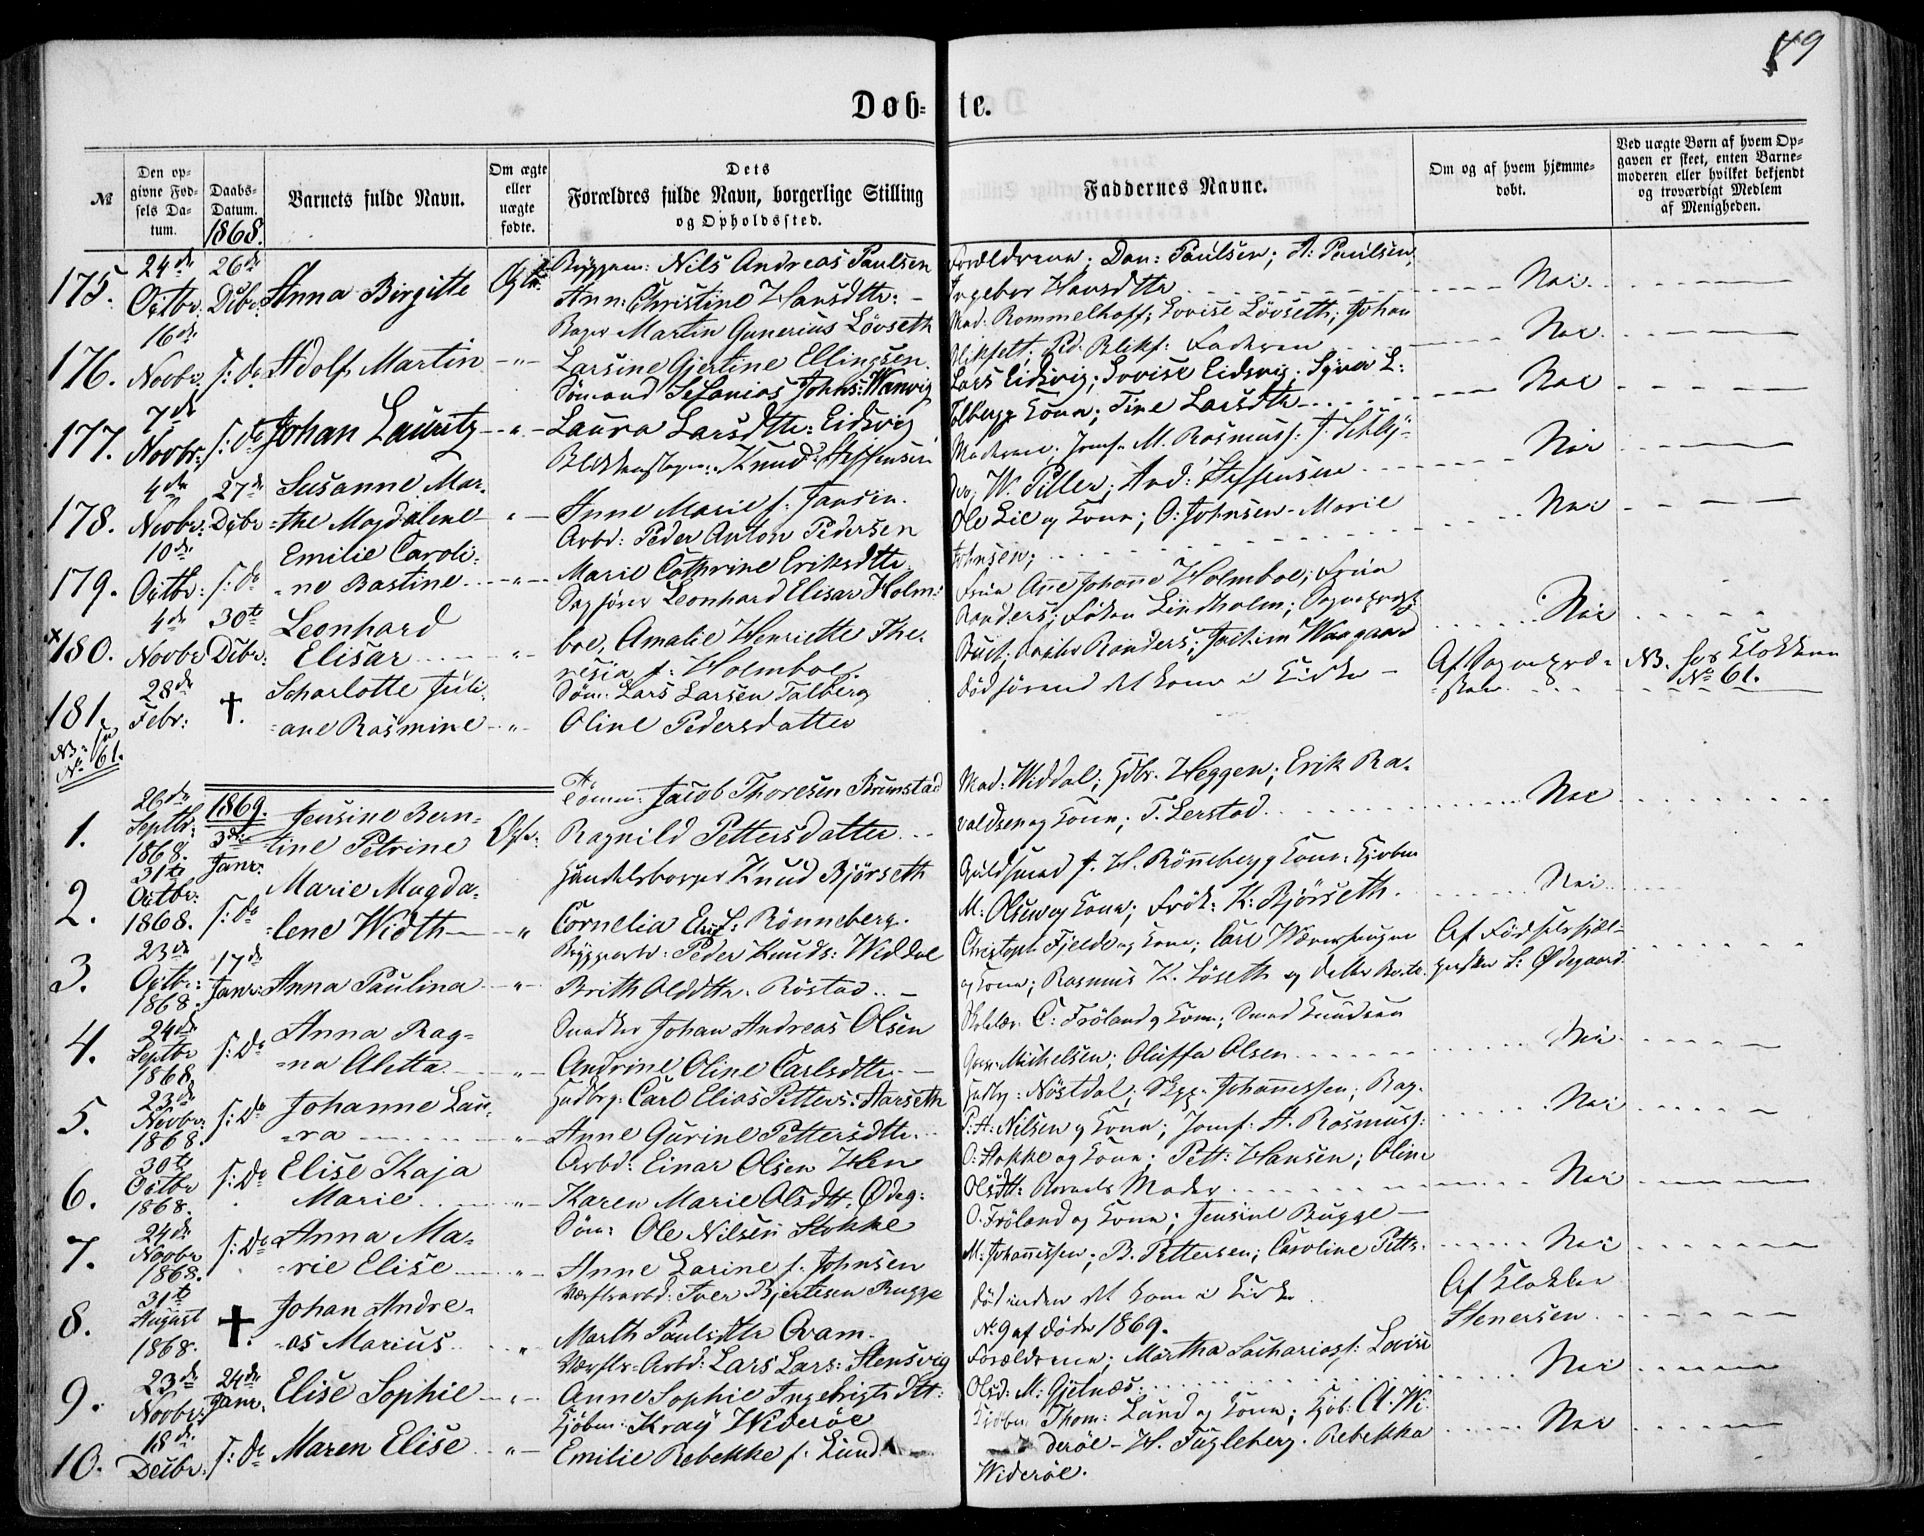 49
Døb-te.
№
Den op-
givne Fød-
sels Da-
tum.
Daabs-
Datum.
1868.
Barnets fulde Navn.
Om ægte
eller
uægte
fødte.
Dets
Forældres fulde Navn, borgerlige Stilling
og Opholdssted.
Faddernes Navne.
Om og af hvem hjemme-
døbt.
Ved uægte Børn af hvem Op-
gaven er skeet, enten Barne-
moderen eller hvilket bekjendt
og troværdigt Medlem
af Menigheden.
175.
24de
Octbr.
26de
Dcbr.
Anna Birgitte
Ægte.
Nils Andreas Paulsen
Ann: Christine Hansdtr:
Forældrene; Dan: Paulsen; A: Paulsen,
Ingeber Hansdtr
Nei.
176.
16de
Novbr.
s: D:
Adolf Martin
Bager Martin Gunerius Lövseth
Larsine Gjertine Ellingsen.
Mad: Rommelhoff; Lovise Lövseth; Johan
Faderen
Nei.
177.
7de
Novbr:
s: Do
Johan Lauritz
Sömand Johns: Wanvig
Laura Larsdtr: Eidsvig
Lars Eidsvig; Lovise Eidsvig. L:
Kone; Tine Larsdtr
Nei
178.
4de
Novbr:
27de
Dcbr
Susanne Mar-
the Magdalene
Knud Steffensen
Anne Marie f: Jansen.
Moderen; Jomf. M. Rasmuss:
W. Piller; And: Steffensen
Nei
179.
10de
Octbr:
s: Do
Emilie Caroli-
ne Bastine
Arbd: Peder Anton Pedersen
Marie Cathrine Eriksdtr
Ole Lie og Kone; O: Johnsen - Marie
Johnsen;
Nei
×180.
4de
Novbr
30te
Dcbr.
Leonhard
Elisar
Sagförer Leonhard Elisar Holm-
boe, Amalie Henriette The-
resia f: Holmboe.
Frue Ane Johanne Holmboe; Frue
Randers; Fröken Lindholm;
Randers; Jochim Waagaard
Nei
181.
NB: See
No 61.
28de
Febr:
†.
Scharlotte Juli-
ane Rasmine
Söm: Lars Larsen Talberg
Oline Pedersdatter
död förend det kom i Kirke
Af Sognepræ-
sten
NB. for Klokken
No 61.
1.
26de
Septbr:
1868.
1869.
3die
Janr.
Jensine Bern-
tine Petrine
Ægte.
Tömm: Jacob Thoresen Brunstad
Ragnild Pettersdatter
Mad: Widdal; Heggen; Erik Ra-
valdsen og Kone; T. Lerstad.
Nei
2.
31te
Octbr:
1868.
s: Do
Marie Magda-
lene Width
Handelsborger Knud Bjørseth
Cornelia Rönneberg.
Guldsmed J. H. Rönneberg Kone.
M: Olsen og Kone; Frök: K: Bjørseth.
Nei
3.
23de
Octbr:
1868.
17de
Janr.
Anna Paulina
Bryggearb: Peder Knuds: Widdal
Brith Olddtr. Röstad
Christoph Fjelde og Kone; Carl
og Kone; Rasmus K. Löseth og
Af Födselshjæl-
persken L: Ødegaard
4.
24de
Septbr
1868.
s: Do
Anna Rag-
na Aletta
Snedker Johan Andreas Olsen
Andrine Oline Carlsdtr.
C: Fröland og Kone; Smed Knudsen
Michelsen; Oluffa Olsen
Nei
5.
23de
Novbr
1868.
s: Do
Johanne Lau-
ra
Carl Elias Petters: Aarseth
Anne Gurine Pettersdtr.
Nöstdal; Skpp. Johannessen; Rag-
P. A: Nilsen og Kone; Jomf: A. Rasmuss:
Nei
6.
30te
Octbr
1868.
s: Do
Elise Kaja
Marie
Arbd: Einar Olsen Hen
Karen Marie Olsdt. Ødeg:
O: Stokke og Kone; Pett: Hansen; Oline
Olsdtr Barnets Moder
Nei
7.
24de
Novbr
1868.
s: Do
Anna Ma-
rie Elise
Söm: Ole Nilsen Stokke
Anne Larine f: Johnsen
O. Fröland og Kone; Jensine Bugge
M: Johannessen; B. Pettersen; Caroline Petts.
Nei
8.
31te
August
1868.
†.
Johan Andre-
as Marius
Værftsarbd: Iver Bjertesen Bugge
Marth Paulsdtr Qvam.
död inden det kom i Kirke
No 9 af döde 1869.
Af Klokker
Stenersen
9.
23de
Novbr.
24de
Janr.
Elise Sophie
Værfts-Arbd: Lars Lars: Stensvig
Anne Sophie Ingebrigts Dtr:
Forældrene; Martha Sachariass: Lovise
Olsd: M: Gjetnæs.
Nei
10.
18de
Decbr.
s: Do
Maren Elise
Kjöbm: Kraÿ Wideröe
Emilie Rebekke f. Lund
Kjöbm Thom: Lund og Kone; Kjöb: A: Wi-
deröe - H. Fugleberg. Rebekka
Wideröe.
Nei